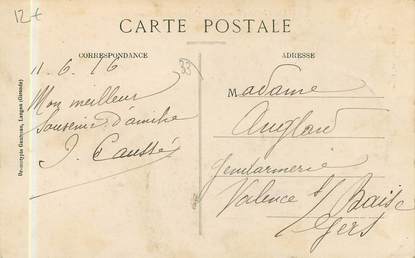 12€
CARTE POSTALE
CORRESPONDANCE
ADRESSE
11.6.16
33
Mon meilleur
Souvenir d'amitié
J. Caussé
Madame
Anglard
Gendarmerie
Valence s/ Baïse
Gers
Langon (Gironde)